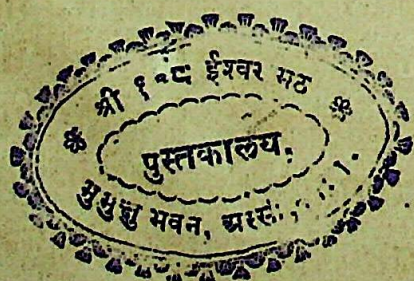 श्री १०८ ईश्वर मठ
पुस्तकालय.
मुमुक्षु भवन, अस्सी,